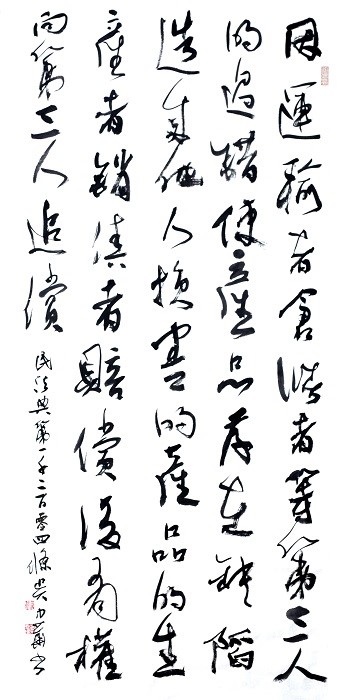 因運輸者倉儲者等第三人
的過錯使產品存在缺陷
造成他人損害的產品的生
產者銷售者賠償後有權
向第三人追償
民法典第一千二百零四條